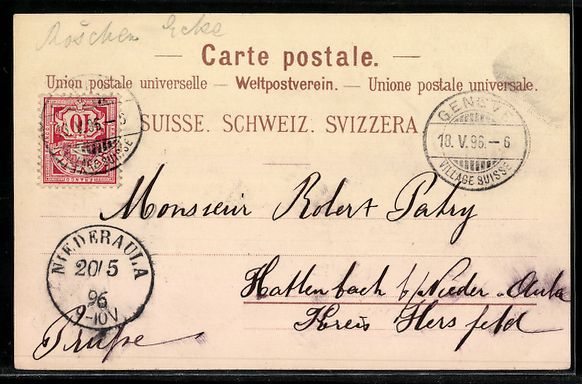 Röschen Ecke
Carte postale.
Union postale universelle. — Weltpostverein. — Unione postale universale.
SUISSE. SCHWEIZ. SVIZZERA
10
GENÈVE
18. V. 96. – 6
VILLAGE SUISSE
GENÈVE
18. V. 96. – 6
VILLAGE SUISSE
Monsieur Robert Patry
NIEDERAULA
20/5
96
9-10V
Hattenbach b/Nieder-Aula
Kreis Hersfeld